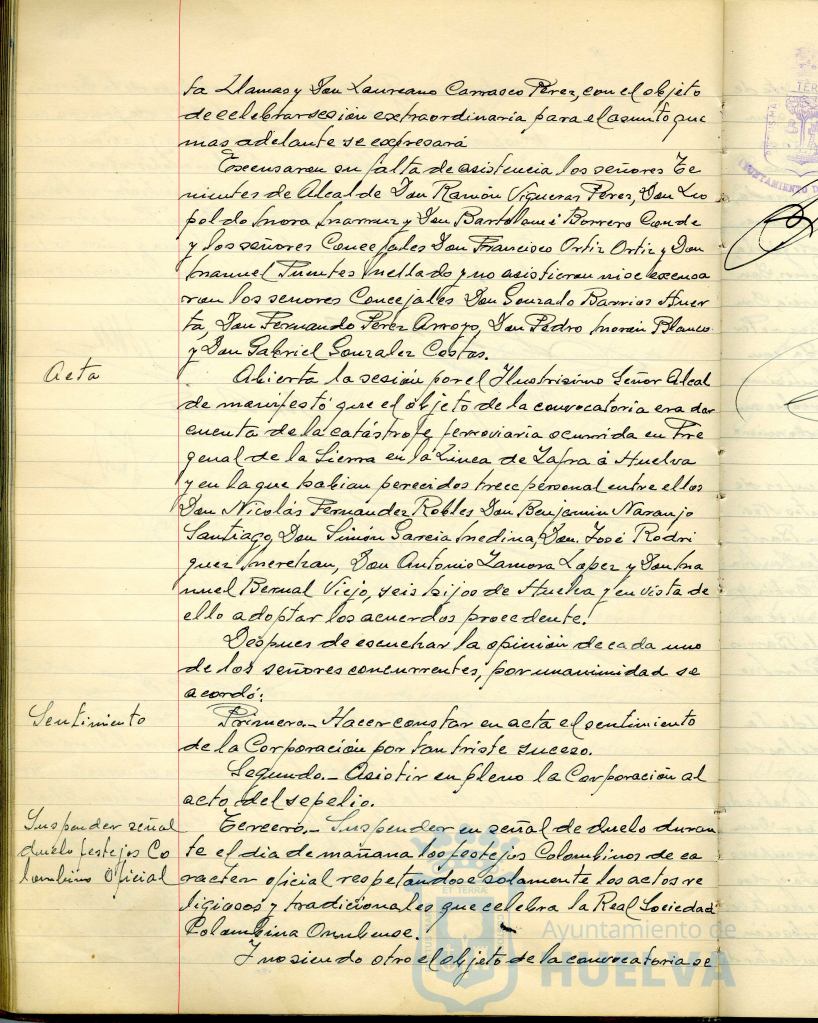 ta Llamas y Don Laureano Carrasco Pérez, con el objeto
de celebrar sesión extraordinaria para el asunto que
mas adelante se expresará
Excusaron su falta de asistencia los señores Te
nientes de Alcalde Don Ramón Vigueras Pérez, Don Leo
poldo Mora Marmuz y Don Bartolomé Borrero Conde
y los señores Concejales Don Francisco Ortiz Ortiz y Don
Manuel Puentes Mellado y no asistieron ni se excusa
ron los señores Concejales Don Gonzalo Barrios Huer
ta, Don Fernando Pérez Arroyo, Don Pedro Morón Blanco
y Don Gabriel Gonzalez Costas.
Acta
Abierta la sesión por el Ilustrisimo Señor Alcal
de manifestó que el objeto de la convocatoria era dar
cuenta de la catástrofe ferroviaria ocurrida en Fre
genal de la Sierra en la Linea de Zafra á Huelva
y en la que habian perecidos trece personal entre ellos
Don Nicolás Fernandez Robles Don Benjamin Naranjo
Santiago, Don Simón Garcia Medina, Don José Rodri
guez Merchan, Don Antonio Zamora Lopez y Don Ma
nuel Bernal Viejo, seis hijos de Huelva y en vista de
ello adoptar los acuerdos procedente.
Despues de escuchar la opinión de cada uno
de los señores concurrentes, por unanimidad se
acordó:
Sentimiento
Primero.- Hacer constar en acta el sentimiento
de la Corporación por tan triste suceso.
Segundo.- Asistir en pleno la Corporación al
acto del sepelio.
Suspender señal
duelo festejos Co
lombino Oficial
Tercero.- Suspender en señal de duelo duran
te el dia de mañana los festejos Colombinos de ca
racter oficial respetandose solamente los actos re
ligiosos y tradicionales que celebra la Real Sociedad
Colombina Onubense.
Y no siendo otro el objeto de la convocatoria se
Ayuntamiento de
HUELVA